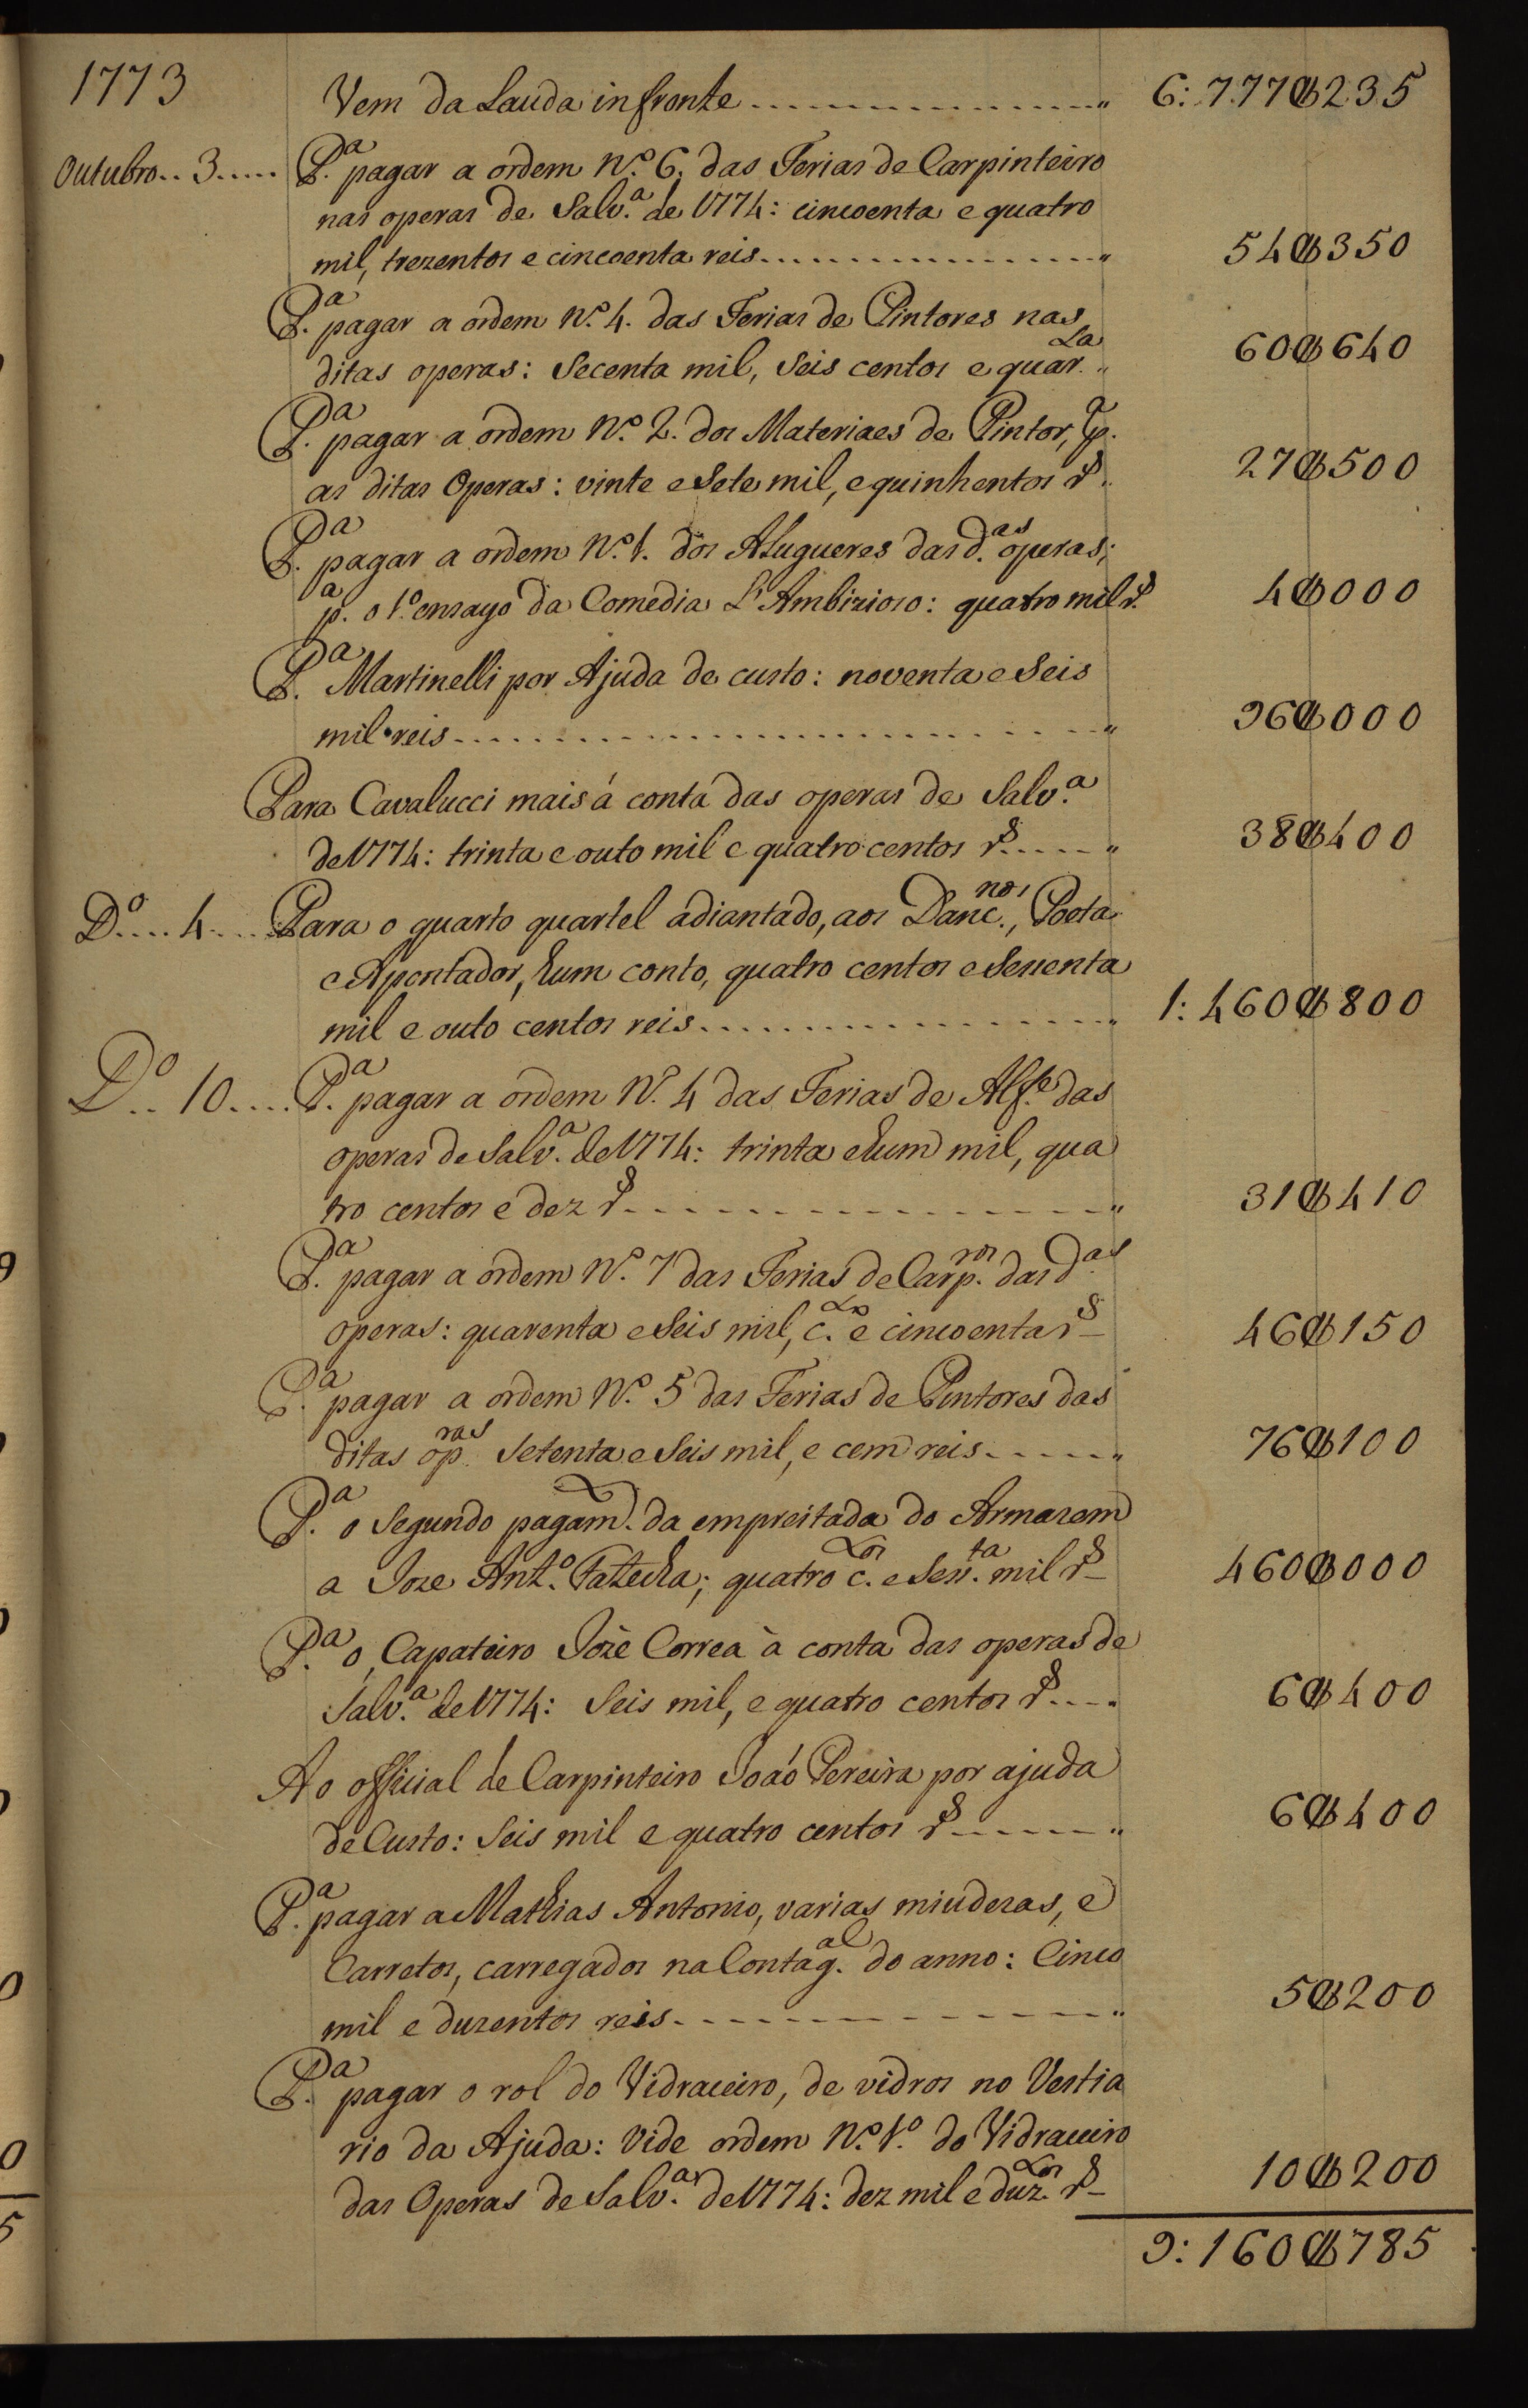 1773
Vem da Lauda infronte ................ " 6: 777$235
Outubro.. 3..... P.ª pagar a ordem N.º 6. das Ferias de Carpinteiro
nas operas de Salv.ª de 1774: cincoenta e quatro
mil, trezentos e cincoenta reis................ " 54$350
P.ª pagar a ordem N.º 4. das Ferias de Pintores nas
ditas operas: Secenta mil, Seis centos e quar.ta " 60$640
P.ª pagar a ordem N.º 2. dos Materiaes de Pintor, p.ª
as ditas Operas: vinte e Sete mil, e quinhentos r.s 27$500
P.ª pagar a ordem N.º 1. dos Alugueres das d.as operas;
p.ª o 1.º ensayo da Comedia L'Ambizioso: quatro mil r.s 4$000
P.ª Martinelli por Ajuda de custo: noventa e Seis
mil reis........................ " 96$000
Para Cavalucci mais á conta das operas de Salv.ª
de 1774: trinta e outo mil e quatro centos r.s..... " 38$400
D.º.... 4..... Para o quarto quartel adiantado, aos Danc.nos, Poeta
e Apontador, hum conto, quatro centos e Sessenta
mil e outo centos reis................ " 1: 460$800
D.º.. 10.... P.ª pagar a ordem N.º 4 das Ferias de Alf.e das
operas de Salv.ª de 1774: trinta e hum mil, qua
tro centos e dez r.s................ " 31$410
P.ª pagar a ordem N.º 7 das Ferias de Carp.ros das d.as
operas: quarenta e Seis mil, c.to e cincoenta r.s _ 46$150
P.ª pagar a ordem N.º 5 das Ferias de Pintores das
ditas op.ras Setenta e Seis mil, e cem reis..... " 76$100
P.ª o Segundo pagam.to da empreitada do Armazem
a Joze Ant.º Fatecha; quatro c.tos e Sess.ta mil r.s _ 460$000
P.ª o Çapateiro Jozè Correa à conta das operas de
Salv.ª de 1774: Seis mil, e quatro centos r.s .... 6$400
Ao official de Carpinteiro Joaó Pereira por ajuda
de Custo: Seis mil e quatro centos r.s ...... " 6$400
P.ª pagar a Mathias Antonio, varias miudezas, e
Carretos, carregados na Contag.al do anno: Cinco
mil e duzentos reis............ " 5$200
P.ª pagar o rol do Vidraceiro, de vidros no Vestia
rio da Ajuda: Vide ordem N.º 1.º do Vidraceiro
das Operas de Salv.ar de 1774: dez mil e duz.tos r.s _ 10$200
9: 160$785